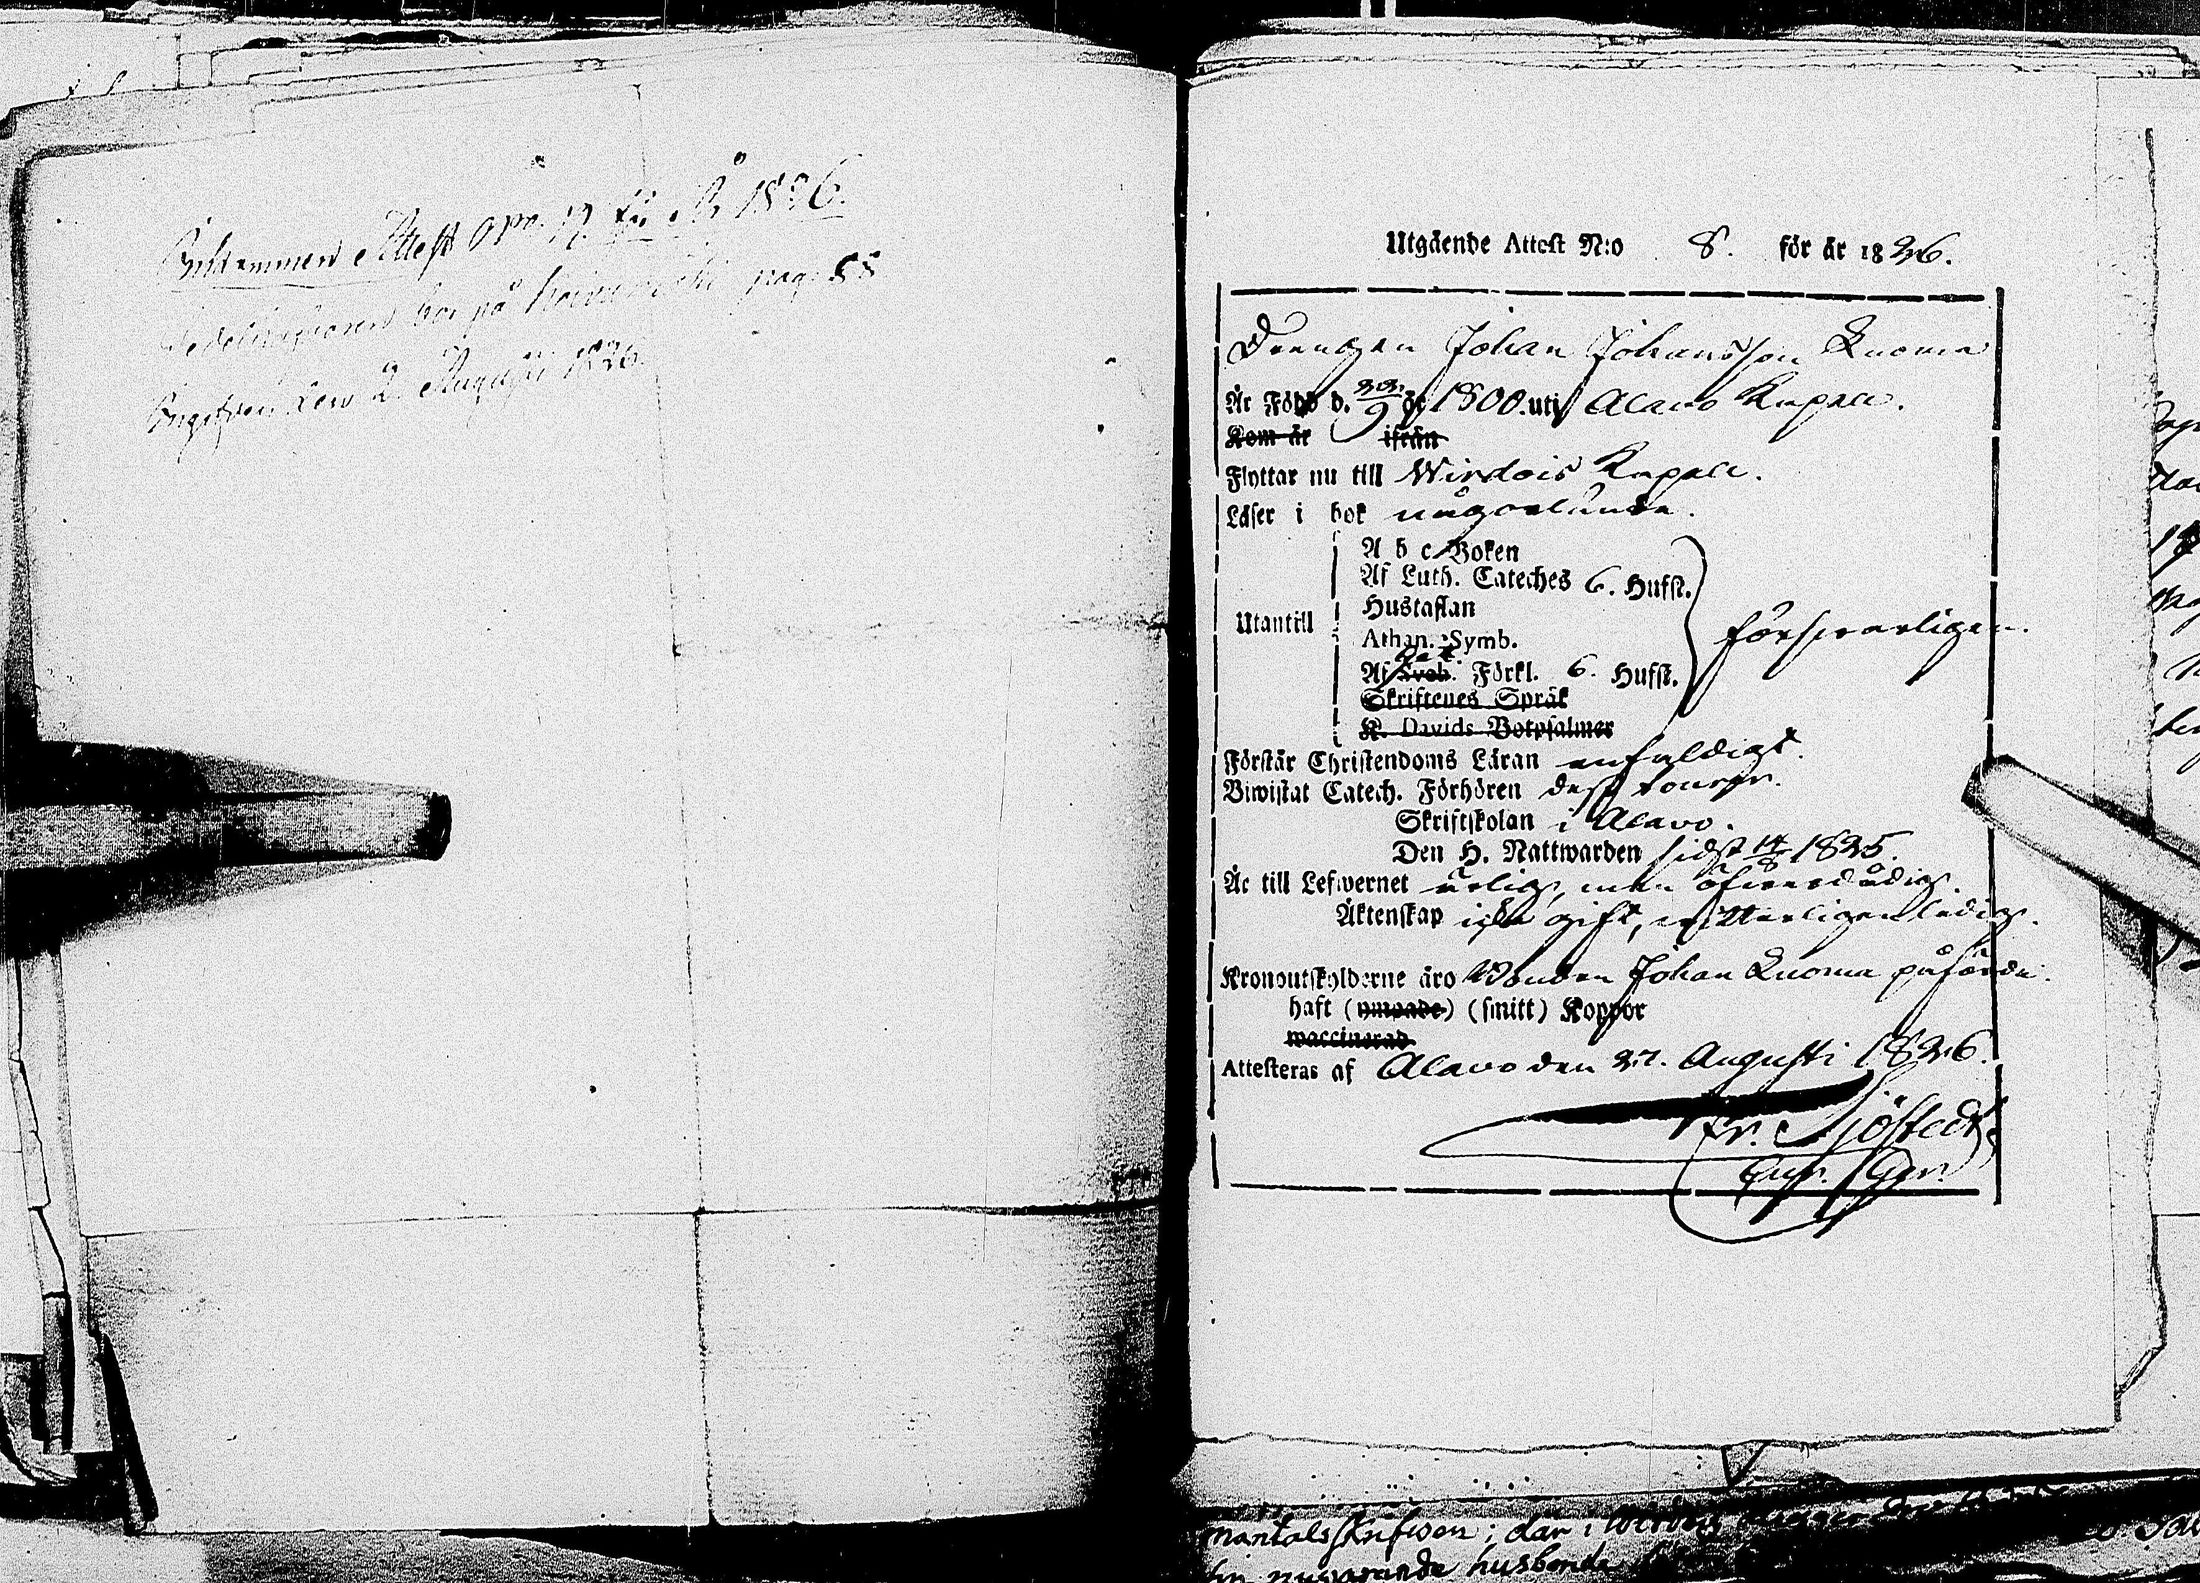 Inkommen Attest No. 17. för År 1826.
bor på pag. 88
den 2. Augusti 1826.
Utgående Attest N:o 8. för år 1826.
Drengen Johan Johansson Kuoma
Är Född d. 22/9 år 1800. uti Alavo Kapell.
Kom år ifrån
Flyttar nu till Wirdois Kapell.
Läser i bok någorlunda.
A b c Boken
Af Luth. Cateches 6. Hufst.
Hustaflan
Utantill försvarligen.
Athan. Symb.
Af Sveb. Förkl. 6. Hufst.
Skriftenes Språk
K. Davids Botpsalmer
Förstår Christendoms Läran enfaldigt.
Biwistat Catech. Förhören dess
Skriftskolan i Alavo.
Den H. Nattwarden sidst 14/8 1825.
Är till Lefwernet ärlig, men öfverdådig.
Äktenskap icke gift, witterligen ledig.
Kronoutskylderne äro Bonden Johan Kuoma påförde.
haft (ympade) (smitt) Koppor
waccinerad
Attesteras af Alavo den 27. Augusti 1826.
Fr. Sjöstedt
mantalsskrifwen; där i
nuvarande husbonde